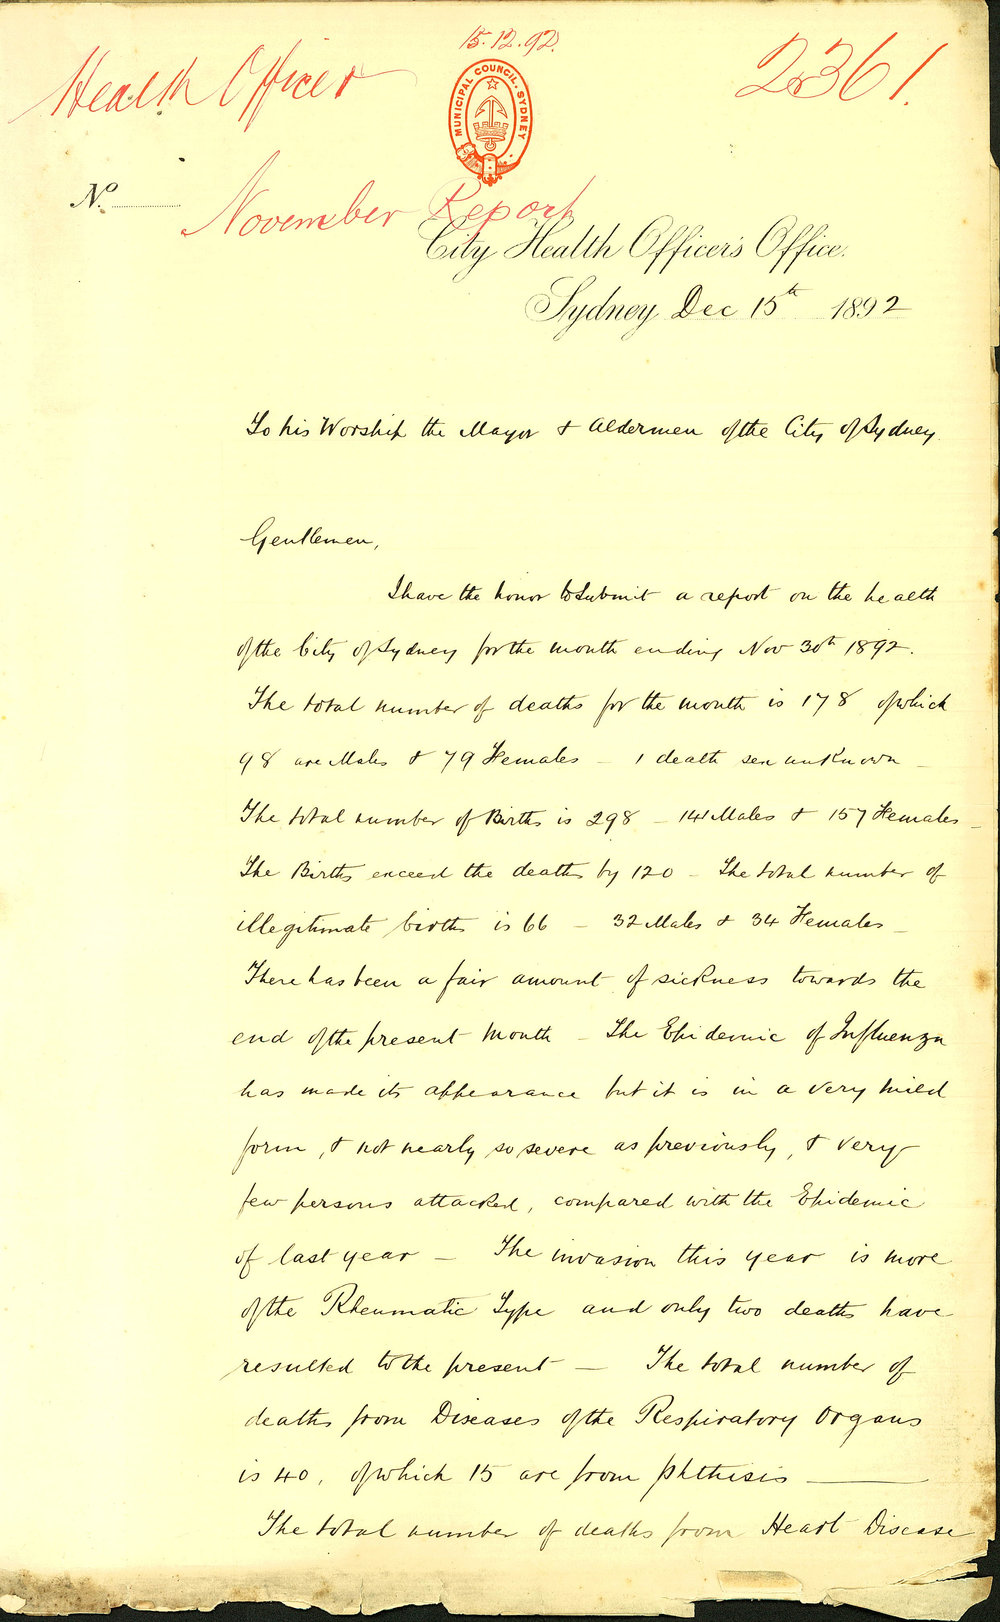 15.12.92.
Health Officer
2361.
MUNICIPAL COUNCIL. SYDNEY
No.
November Report
City Health Officer's Office.
Sydney Dec 15th 1892
To his Worship the Mayor & Aldermen of the City of Sydney.
Gentlemen,
I have the honor to submit a report on the health
of the City of Sydney for the month ending Nov 30th 1892.
The total number of deaths for the month is 178 of which
98 are Males & 79 Females - 1 death sex unknown -
The total number of Births is 298 - 141 Males & 157 Females -
The Births exceed the deaths by 120 - The total number of
illegitimate births is 66 - 32 Males & 34 Females -
There has been a fair amount of sickness towards the
end of the present Month - The Epidemic of Influenza
has made its appearance but it is in a very mild
form, & not nearly so severe as previously, & very
few persons attacked, compared with the Epidemic
of last year - The invasion this year is more
of the Rheumatic Type and only two deaths have
resulted to the present - The total number of
deaths from Diseases of the Respiratory Organs
is 40, of which 15 are from phthisis -
The total number of deaths from Heart Disease